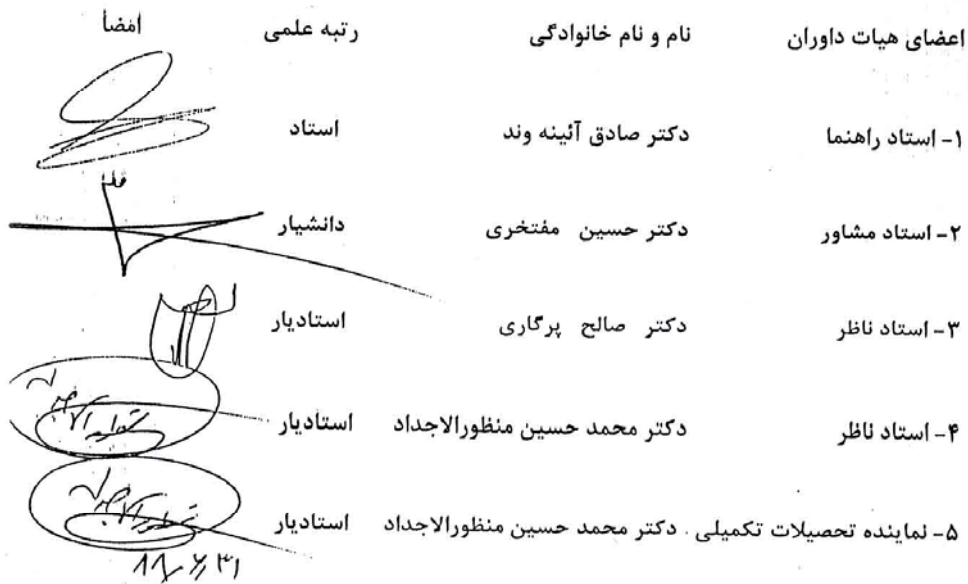 اعضای هیات داوران نام و نام خانوادگی رتبه علمی امضا
۱- استاد راهنما دکتر صادق آئینه وند استاد
۲- استاد مشاور دکتر حسین مفتخری دانشیار
۳- استاد ناظر دکتر صالح پرگاری استادیار
۴- استاد ناظر دکتر محمد حسین منظورالاجداد استادیار
۵- نماینده تحصیلات تکمیلی . دکتر محمد حسین منظورالاجداد استادیار
۸۸/۶/۳۱